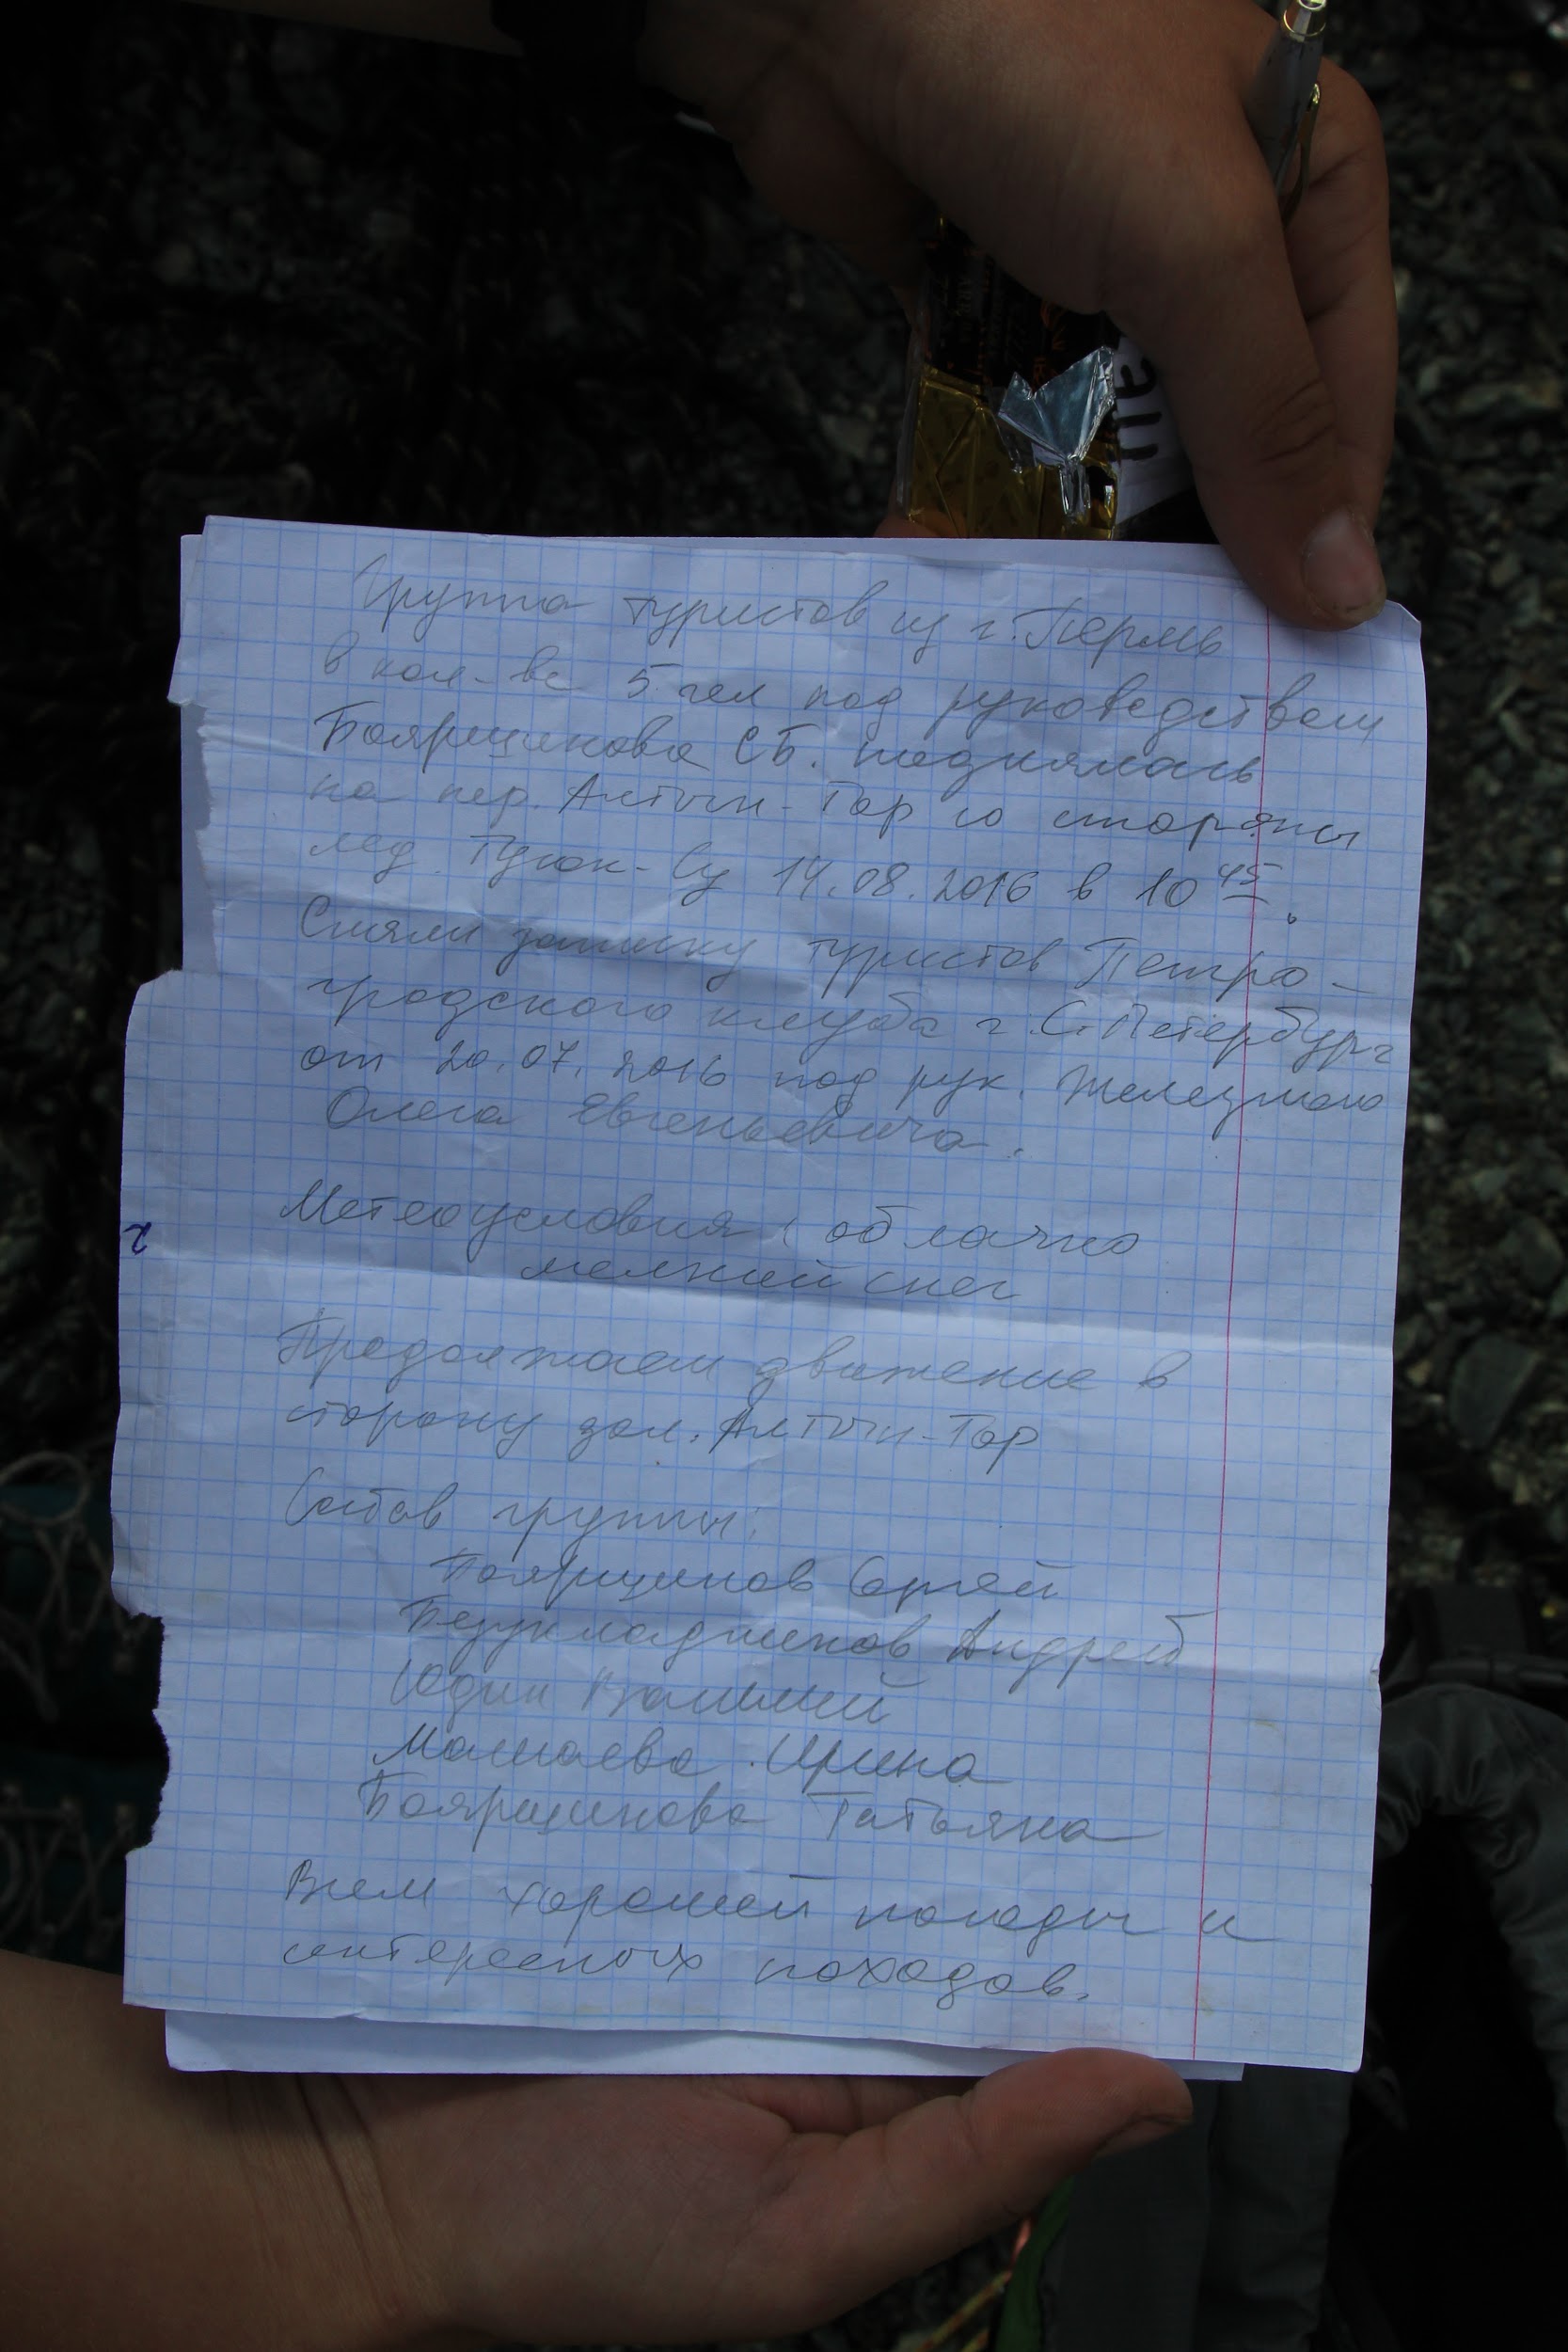 Группа туристов из г. Пермь
в кол-ве 5 чел под руководством
Боярщинова С.Б. поднялась
на пер. Алтын-Тор со стороны
лед. Туюк-Су 14.08.2016 в 10 45.
Сняли записку туристов Петро-
градского клуба г. С. Петербург
от 20.07.2016 под рук. Железного
Олега Евгеньевича.
Метеоусловия: облачно
мелкий снег
Продолжаем движение в
сторону дол. Алтын-Тор
Состав группы:
Боярщинов Сергей
Безукладников Андрей
Юдин
Ирина
Боярщинова Татьяна
Всем хорошей погоды и
интересных походов.